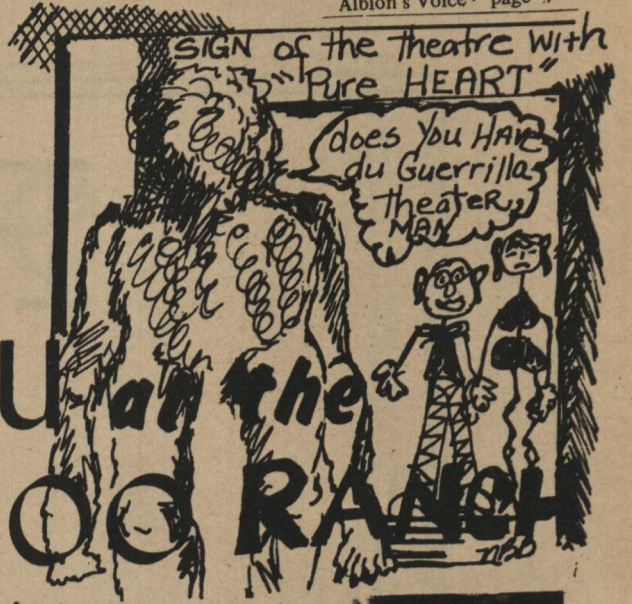 Albion's Voice page
SIGN of the theatre with
"Pure HEART"
does You HAve
du Guerrilla
theater,
MAN
u at the
OO RANCH